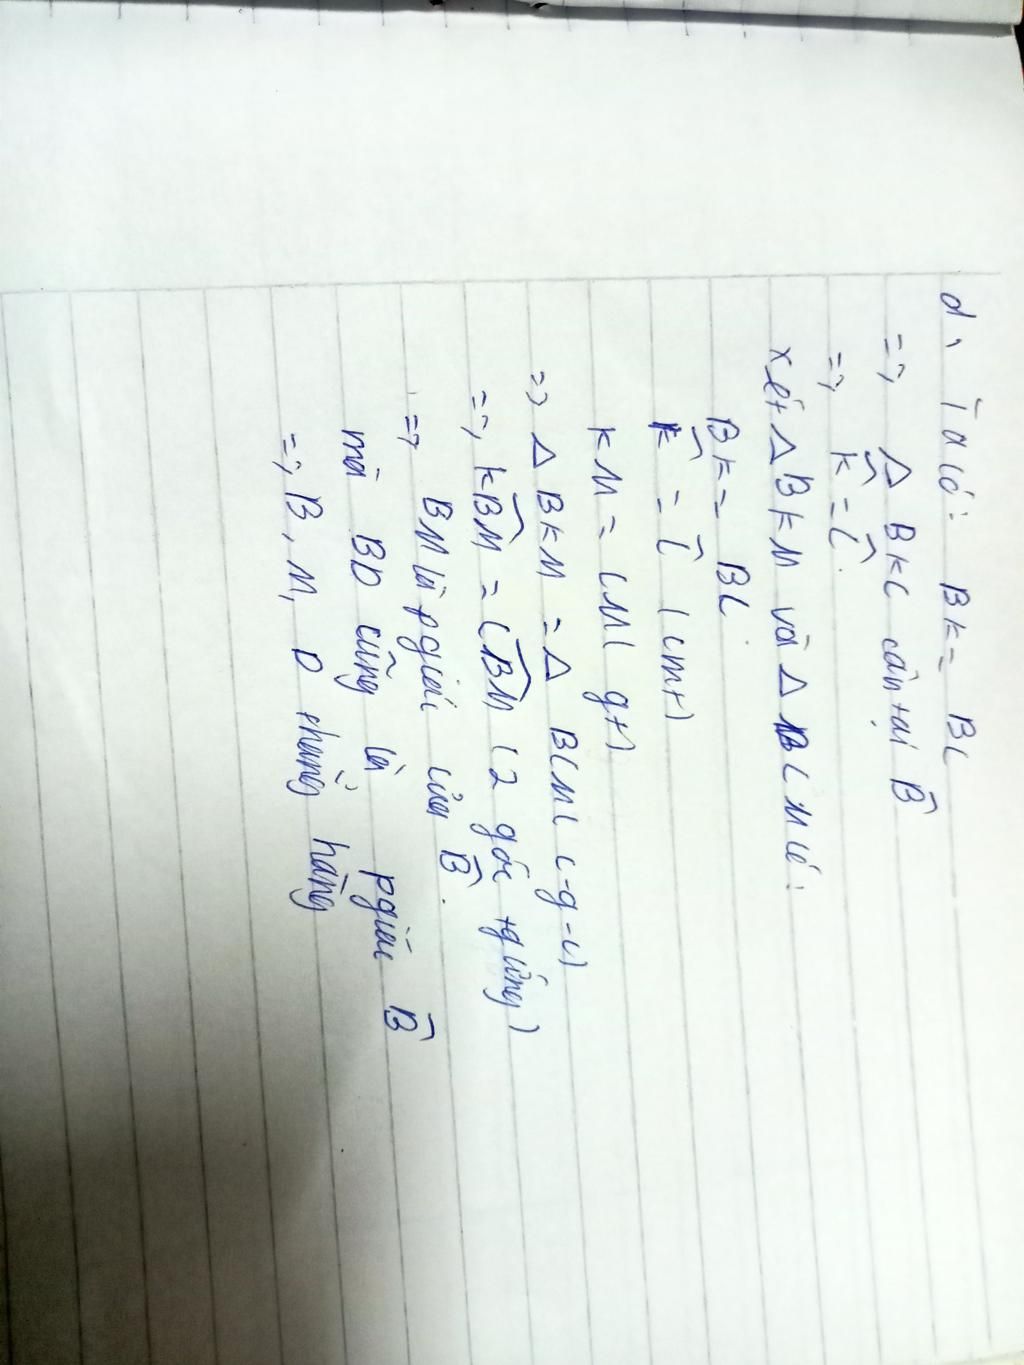 d, Ta có: BK = BC
=> Δ BKC cân tại B̂
=> K̂ = Ĉ.
xét Δ BKM và Δ BCM có:
BK = BC.
K̂ = Ĉ (cmt)
KM = CM ( gt)
=> Δ BKM = Δ BCM ( c-g-c)
=> KB̂M = CB̂M ( 2 góc tg ứng )
=> BM là pgiác của B̂.
mà BD cũng là pgiác B̂
=> B, M, D thẳng hàng